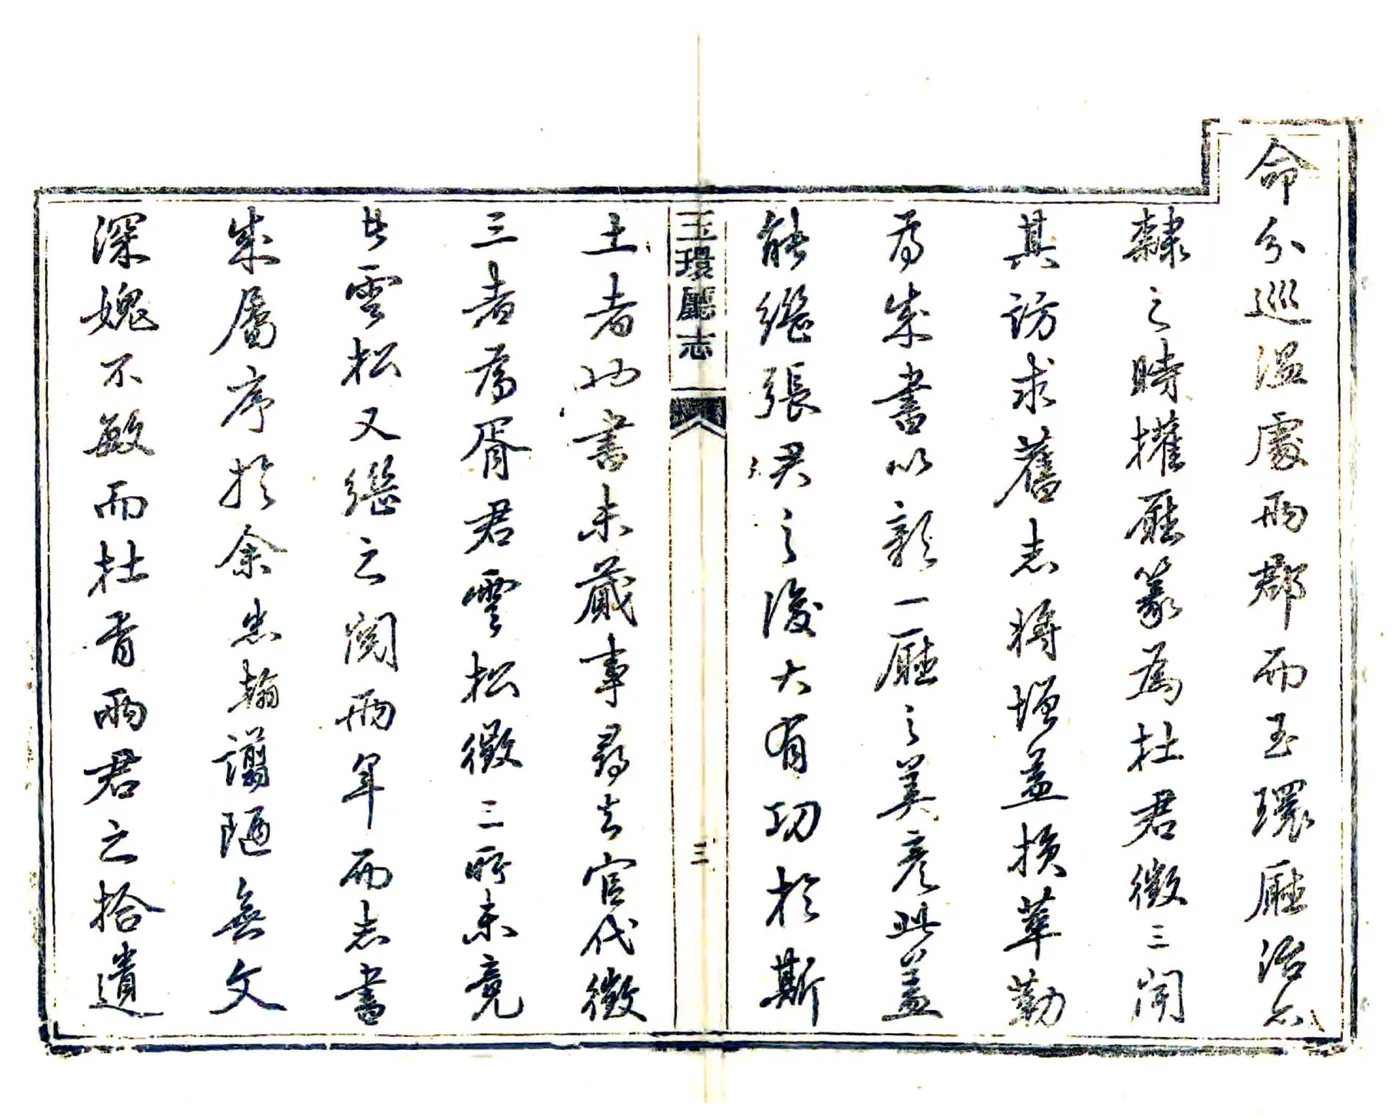 命分巡溫處兩郡而玉環廳治亦
隸之時權廳篆為杜君徵三聞
其訪求舊志將增益損萃勤
為成書以新一廳之美彥此蓋
能繼張君之後大有功於斯
玉環廳志
三
土者也書未蕆事尋去官代徵
三者為胥君雲松徵三所未竟
者雲松又繼之閱兩年而志書
成屬序於余忠翰譾陋無文
深媿不敏而杜胥兩君之拾遺